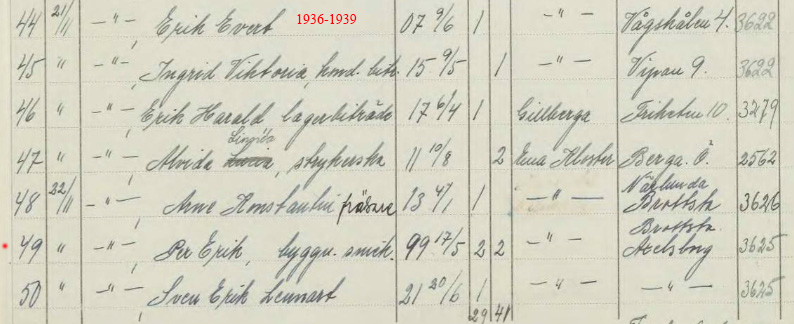 44 21/11 -"- , Erik Evert 1936-1939 07 9/6 1 -"- Vågskålen 4. 3622
45 " -"- , Ingrid Viktoria, kond. bitr. 15 9/5 1 -"- Vipan 9. 3622
46 " -"- , Erik Harald lagerbiträde 17 6/4 1 Gillberga 10. 3279
47 " -"- , Alvida, strykerska 11 10/8 2 Kloster Berga. Ö. 2562
48 22/11 -"- , Arne Konstantin fräsare 13 4/1 1 -"- Näslunda Brottsta 3626
49 " -"- , Per Erik, byggn. snick. 99 17/5 2 2 -"- Brottsta Axelsborg 3625
50 " -"- , Sven Erik Lennart 21 20/6 1 -"- -"- 3625
29 41